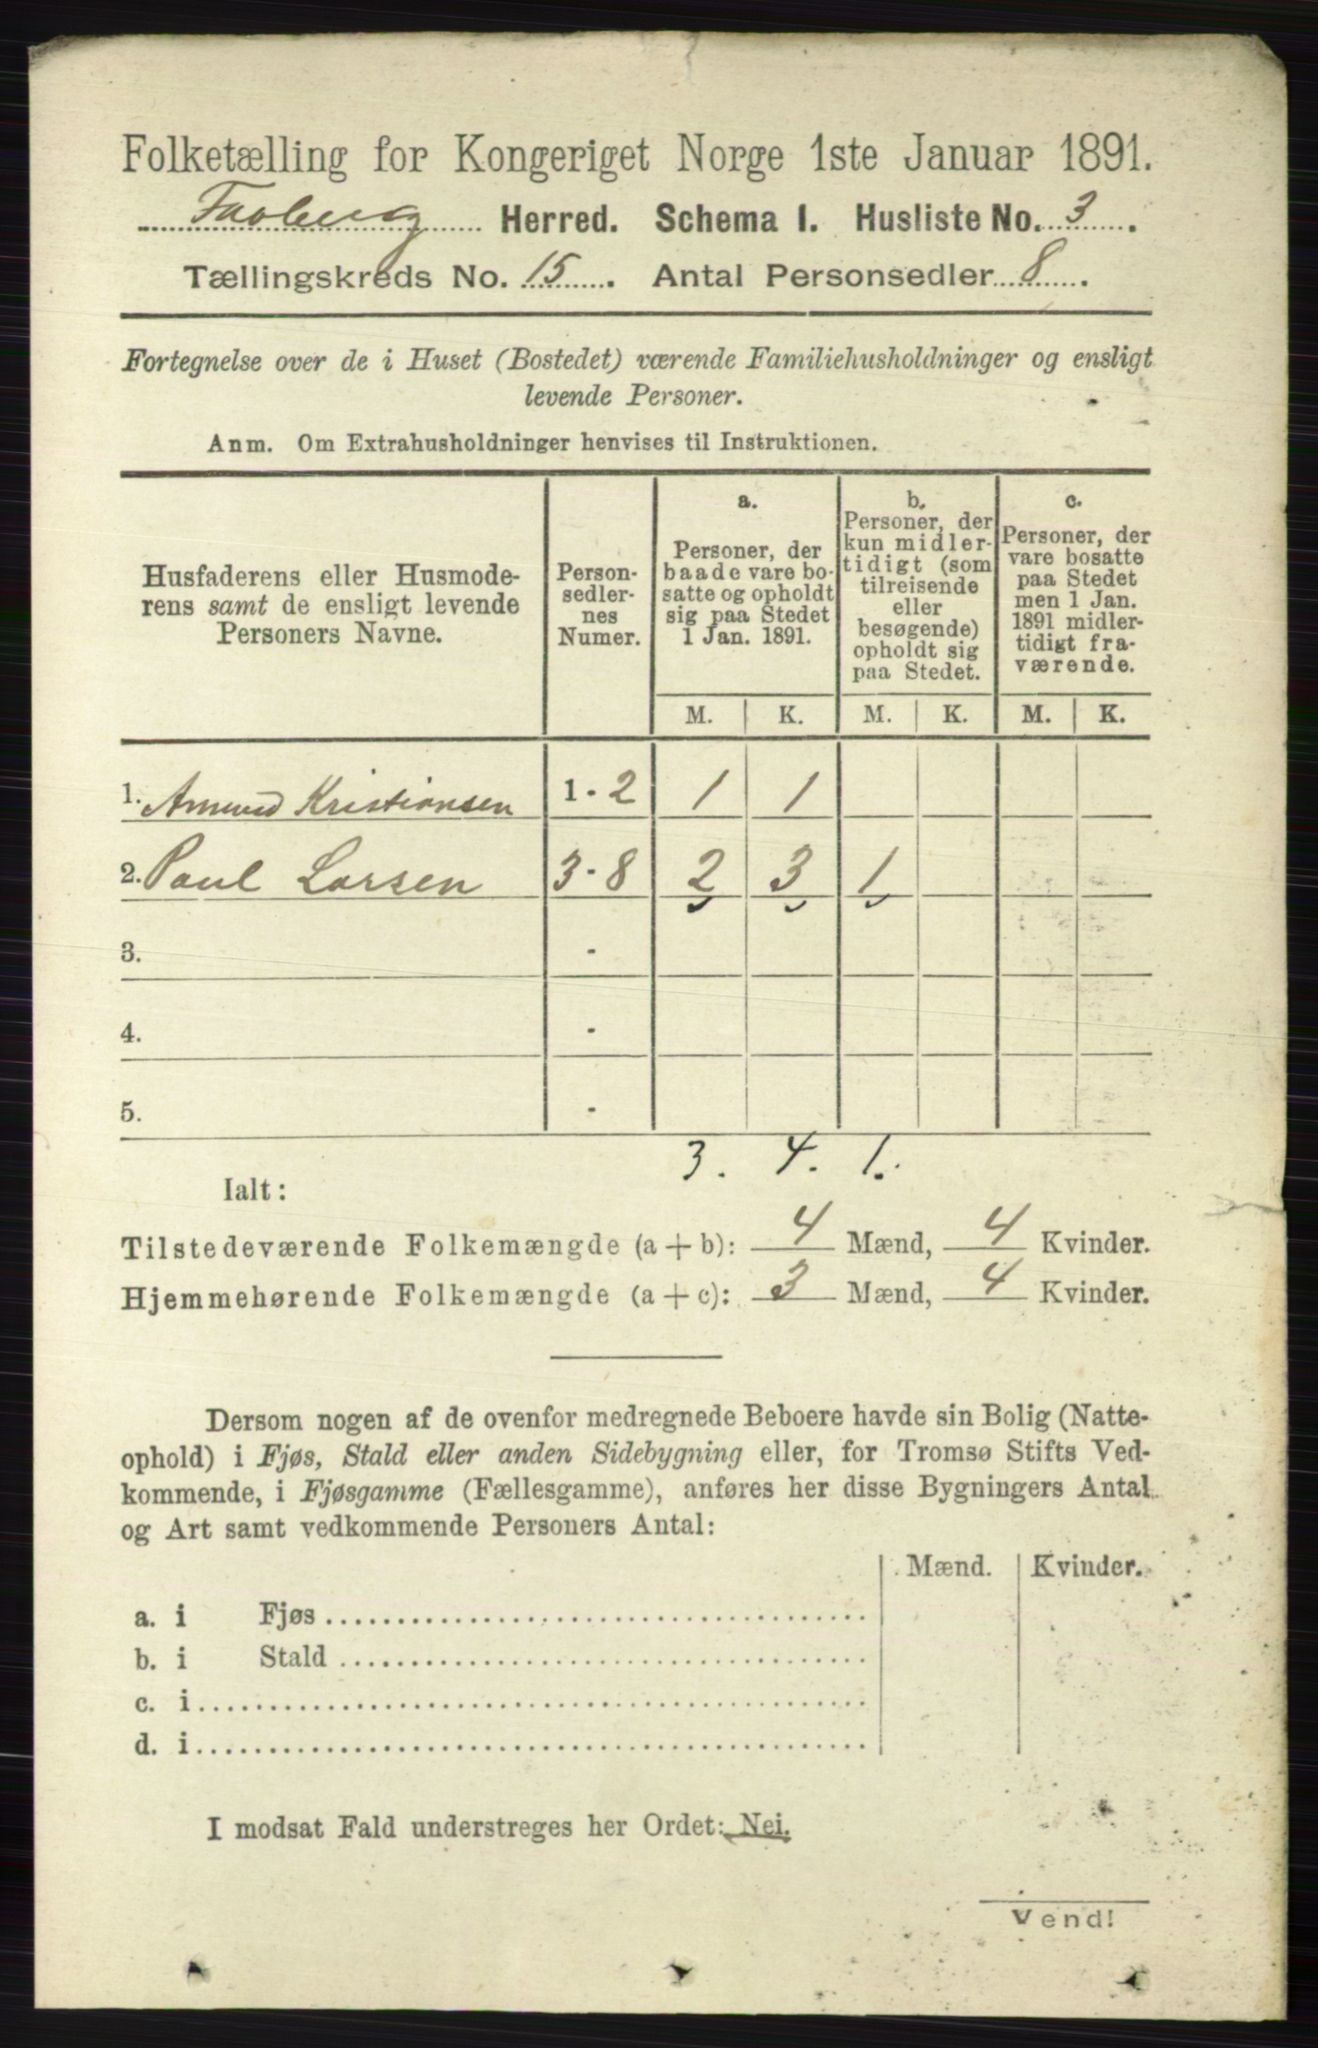 Folketælling for Kongeriget Norge 1ste Januar 1891.
Faaberg Herred. Schema I. Husliste No. 3.
Tællingskreds No. 15. Antal Personsedler 8.
Fortegnelse over de i Huset (Bostedet) værende Familiehusholdninger og ensligt
levende Personer.
Anm. Om Extrahusholdninger henvises til Instruktionen.
Husfaderens eller Husmode-
rens samt de ensligt levende
Personers Navne.
Person-
sedler-
nes
Numer.
a.
Personer, der
baade vare bo-
satte og opholdt
sig paa Stedet
1 Jan. 1891.
b.
Personer, der
kun midler-
tidigt (som
tilreisende
eller
besøgende)
opholdt sig
paa Stedet.
c.
Personer, der
vare bosatte
paa Stedet
men 1 Jan.
1891 midler-
tidigt fra-
værende.
M. K. M. K. M. K.
1. Amund Kristiansen 1-2 1 1
2. Paul Larsen 3-8 2 3 1
3. -
4. -
5. -
3. 4. 1.
Ialt:
Tilstedeværende Folkemængde (a+b): 4 Mænd, 4 Kvinder.
Hjemmehørende Folkemængde (a+c): 3 Mænd, 4 Kvinder.
Dersom nogen af de ovenfor medregnede Beboere havde sin Bolig (Natte-
ophold) i Fjøs, Stald eller anden Sidebygning eller, for Tromsø Stifts Ved-
kommende, i Fjøsgamme (Fællesgamme), anføres her disse Bygningers Antal
og Art samt vedkommende Personers Antal:
Mænd. Kvinder.
a. i Fjøs
b. i Stald
c. i
d. i
I modsat Fald understreges her Ordet: Nei.
Vend!